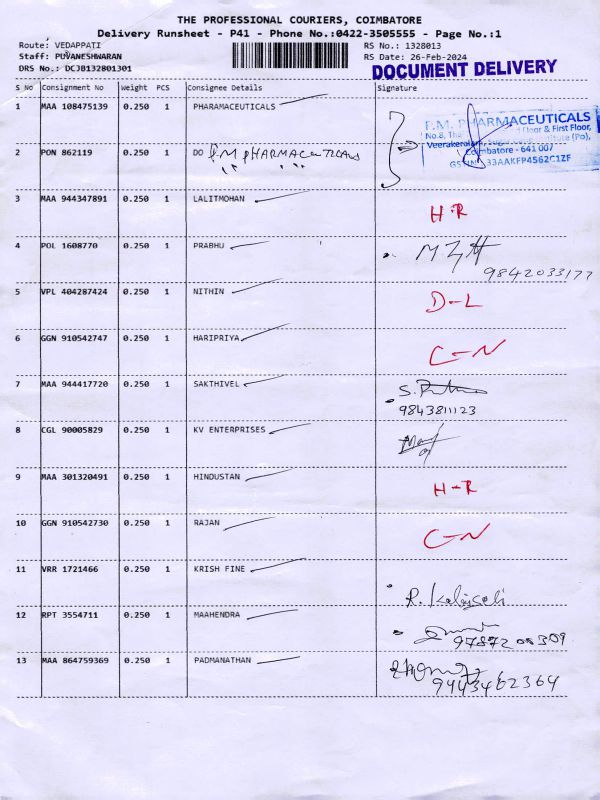 THE PROFESSIONAL COURIERS, COIMBATORE
Delivery Runsheet - P41 - Phone No.:0422-3505555 - Page No.:1
Route: VEDAPPATI RS No.: 1328013
Staff: PUVANESHWARAN RS Date: 26-Feb-2024
DRS No.: DCJB132801301 DOCUMENT DELIVERY
S No Consignment No Weight PCS Consignee Details Signature
1 MAA 108475139 0.250 1 PHARAMACEUTICALS
P.M. PHARMACEUTICALS
Floor & First Floor,
Coimbatore - 641 007
33AAKFP4562C1ZF
2 PON 862119 0.250 1 DO P.M PHARMACEUTICALS
3 MAA 944347891 0.250 1 LALITMOHAN H-R
4 POL 1608770 0.250 1 PRABHU
9842033177
5 VPL 404287424 0.250 1 NITHIN D-L
6 GGN 910542747 0.250 1 HARIPRIYA C-N
7 MAA 944417720 0.250 1 SAKTHIVEL
9843811123
8 CGL 90005829 0.250 1 KV ENTERPRISES
9 MAA 301320491 0.250 1 HINDUSTAN H-R
10 GGN 910542730 0.250 1 RAJAN C-N
11 VRR 1721466 0.250 1 KRISH FINE
12 RPT 3554711 0.250 1 MAAHENDRA
13 MAA 864759369 0.250 1 PADMANATHAN
9443462364